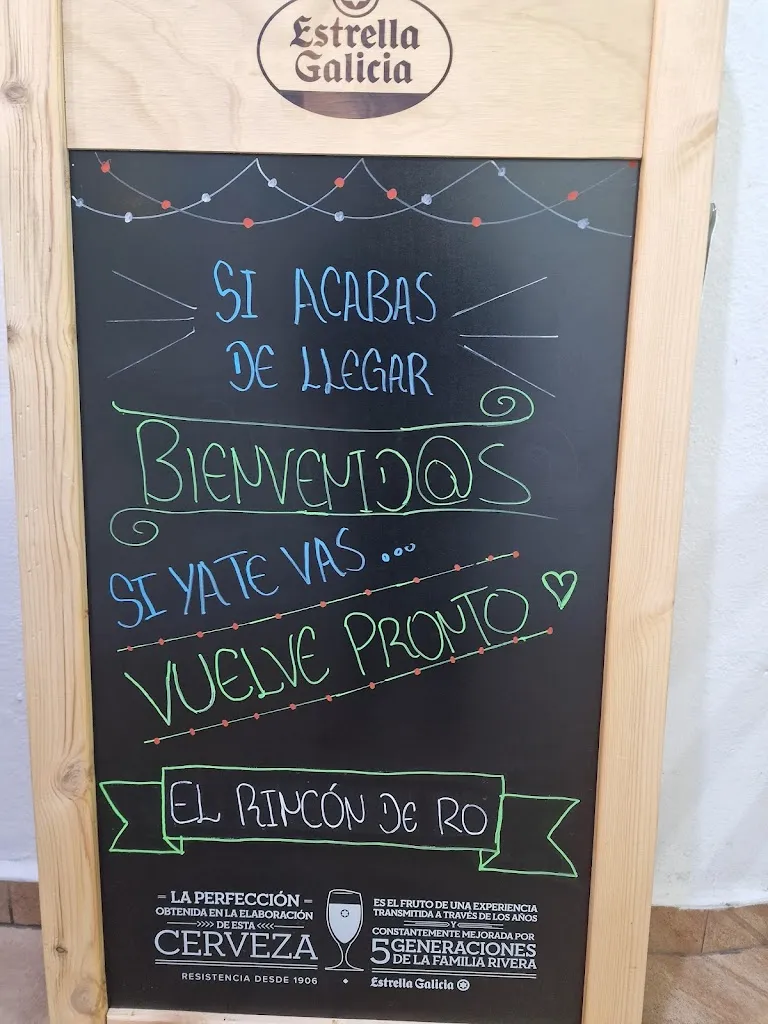 Estrella
Galicia
SI ACABAS
DE LLEGAR
BIENVENID@S
SI YA TE VAS ...
VUELVE PRONTO
EL RINCÓN DE RO
- LA PERFECCIÓN -
OBTENIDA EN LA ELABORACIÓN
DE ESTA
CERVEZA
RESISTENCIA DESDE 1906
ES EL FRUTO DE UNA EXPERIENCIA
TRANSMITIDA A TRAVÉS DE LOS AÑOS
Y
CONSTANTEMENTE MEJORADA POR
5 GENERACIONES
DE LA FAMILIA RIVERA
Estrella Galicia